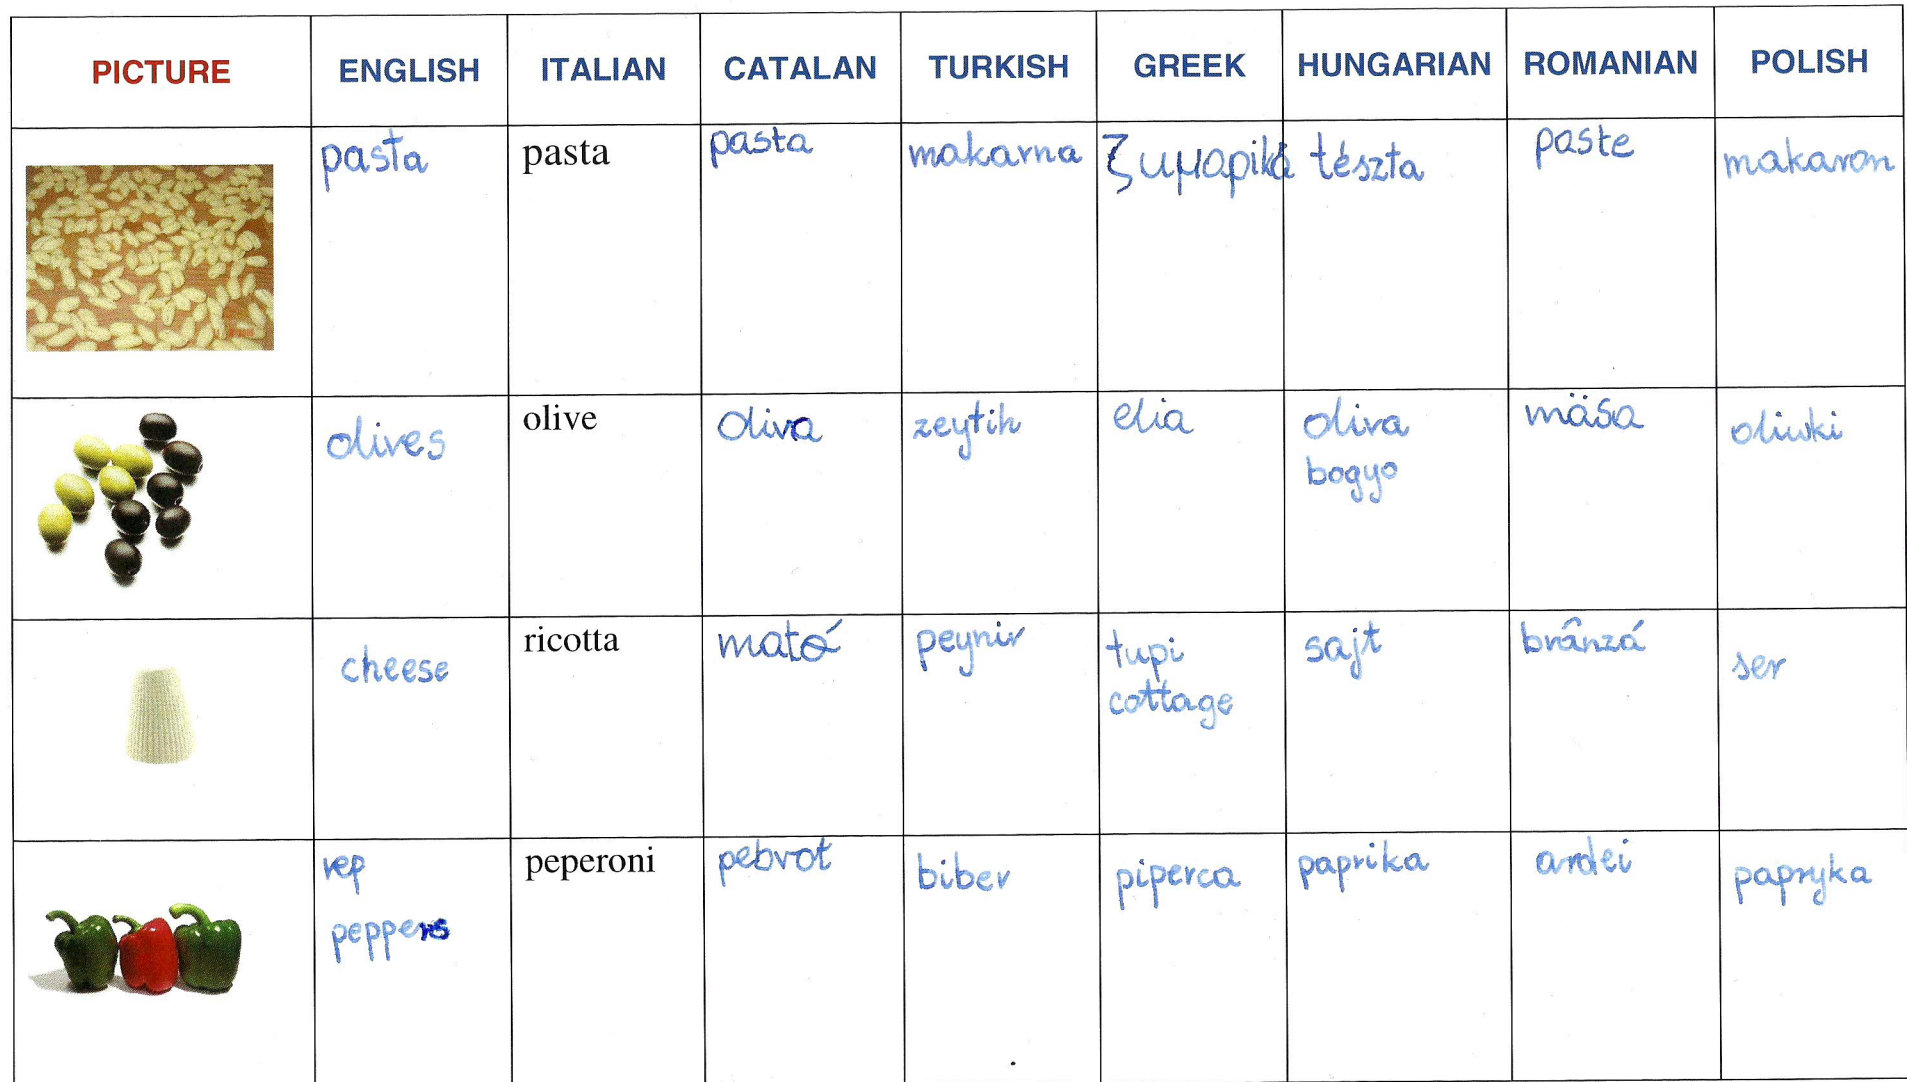 PICTURE ENGLISH ITALIAN CATALAN TURKISH GREEK HUNGARIAN ROMANIAN POLISH
pasta pasta pasta makarna ζυμαρικά tészta paste makaron
olives olive oliva zeytin elia oliva mäsa oliwki
bogyo
cheese ricotta mató peynir tupi sajt brânzá ser
cottage
rep peperoni pebrot biber piperca paprika ardei papryka
peppers